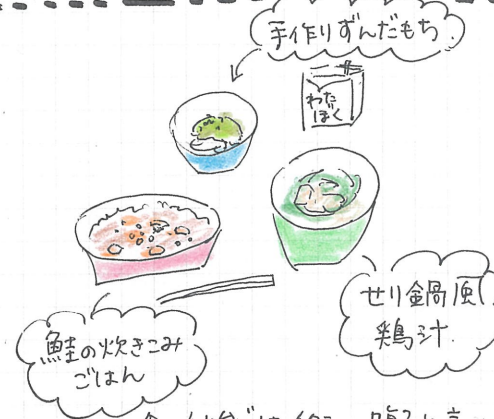 手作りずんだもち
わたぼく
せり鍋風
鶏汁
鮭の炊きこみ
ごはん